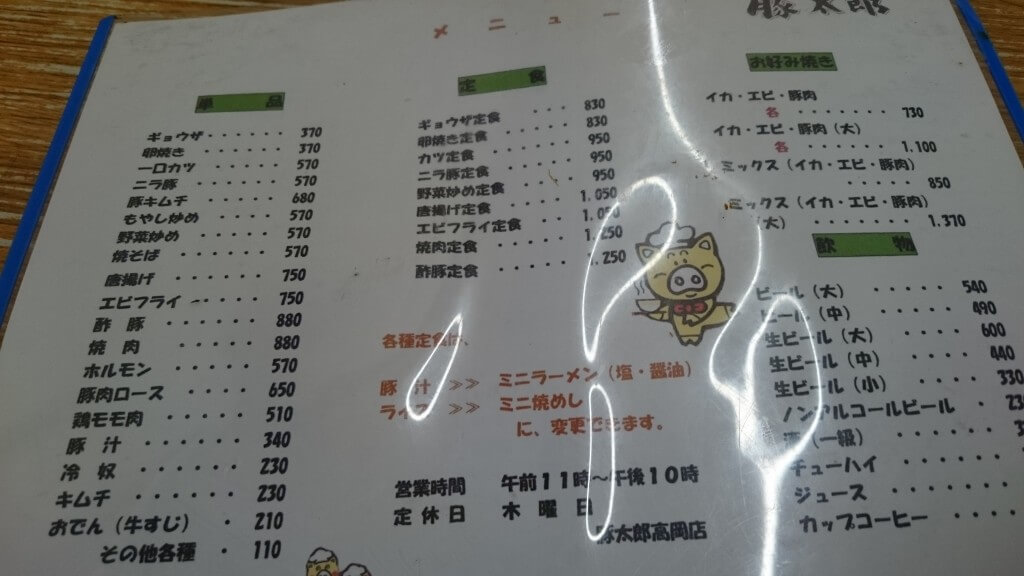 メニュー
豚太郎
単品
ギョウザ・・・・・・ 370
卵焼き・・・・・・・ 370
一口カツ・・・・・・ 570
ニラ豚・・・・・・・ 570
豚キムチ・・・・・・ 680
もやし炒め・・・・・ 570
野菜炒め・・・・・・ 570
焼そば・・・・・・・ 570
唐揚げ・・・・・・・ 750
エビフライ・・・・・ 750
酢豚・・・・・・・ 880
焼肉・・・・・・・ 880
ホルモン・・・・・・ 570
豚肉ロース・・・・・ 650
鶏モモ肉・・・・・・ 510
豚汁・・・・・・・ 340
冷奴・・・・・・・ 230
キムチ・・・・・・・ 230
おでん（牛すじ）・ 210
その他各種・ 110
定食
ギョウザ定食・・・ 830
卵焼き定食・・・・ 830
カツ定食・・・・・ 950
ニラ豚定食・・・・ 950
野菜炒め定食・・・ 950
唐揚げ定食・・・・ 1.050
エビフライ定食・・ 1.050
焼肉定食・・・・・ 1.250
酢豚定食・・・・・ 1.250
各種定食は、
豚汁 >> ミニラーメン（塩・醤油）
ライス >> ミニ焼めし
に、変更できます。
営業時間 午前11時～午後10時
定休日 木曜日
豚太郎高岡店
お好み焼き
イカ・エビ・豚肉
各・・・・・・ 730
イカ・エビ・豚肉（大）
各・・・・・・ 1.100
ミックス（イカ・エビ・豚肉）
・・・・・ 850
ミックス（イカ・エビ・豚肉）
（大）・・・・・ 1.370
飲物
ビール（大）・・・・・ 540
ビール（中）・・・・・ 490
生ビール（大）・・・・ 600
生ビール（中）・・・・ 440
生ビール（小）・・・・ 330
ノンアルコールビール・
（一級）・・・・・
チューハイ・・・・・・
ジュース・・・・・・・
カップコーヒー・・・・